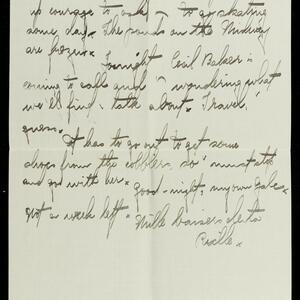 no courage to ask - to go skating
some day. The ponds on the Midway
are frozen.
Tonight Cecil Baker is
coming to call and wondering what
we'll find talk about. Travel,
guess.
has to go out to get some
shoes from the cobblers, so must stop
and go with her.
Good-night, my own
Not a week left. Mille baisers de ta